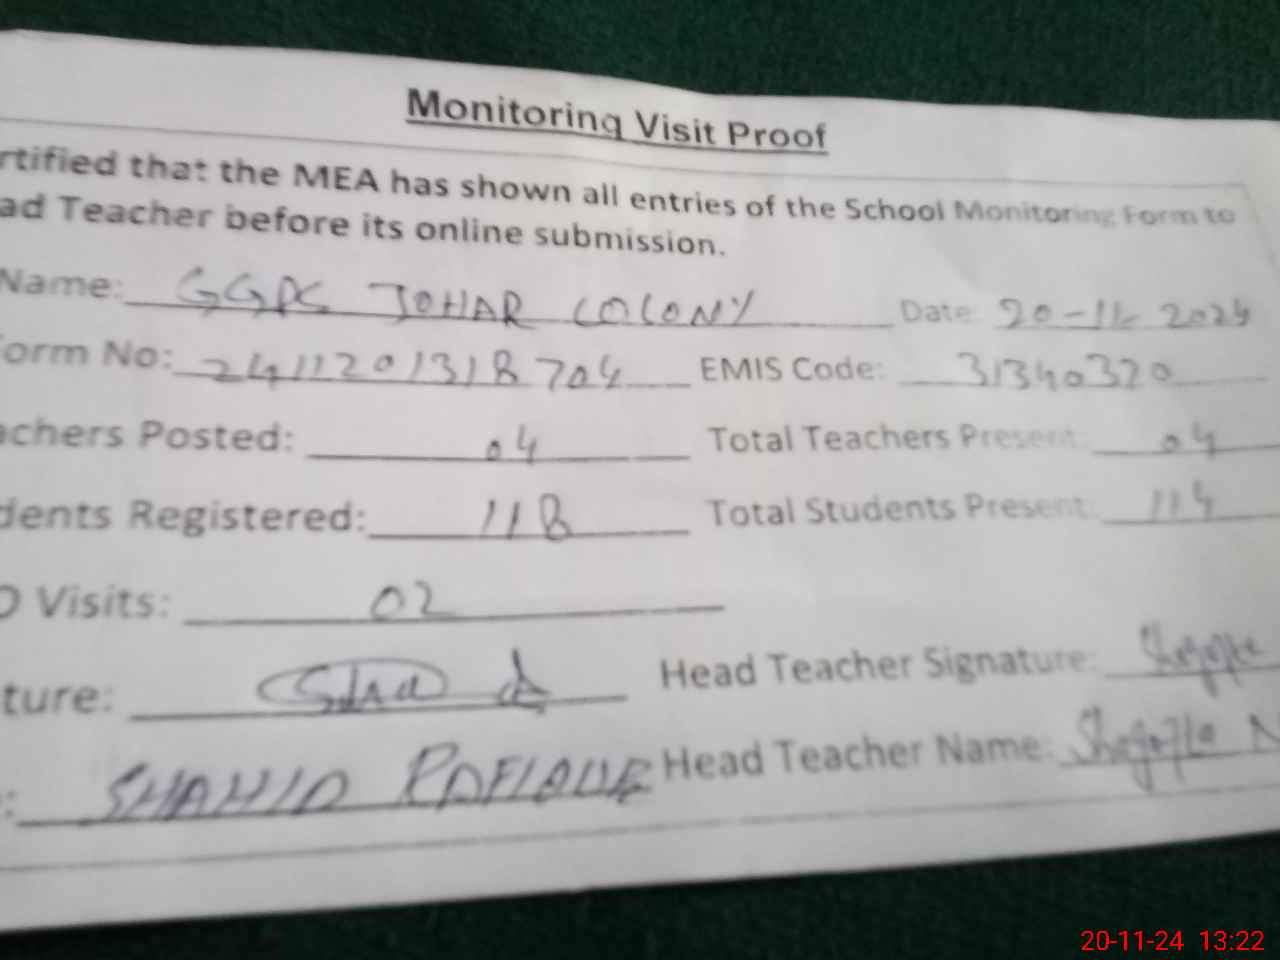 Monitoring Visit Proof
rtified that the MEA has shown all entries of the School Monitoring Form to
ad Teacher before its online submission.
Name: GGPS JOHAR COLONY Date: 20-11-2024
orm No: 2411201318704 EMIS Code: 31340320
achers Posted: 04 Total Teachers Present: 04
dents Registered: 118 Total Students Present: 114
O Visits: 02
ture: Head Teacher Signature:
: SHAHID RAFIQUE Head Teacher Name:
20-11-24 13:22